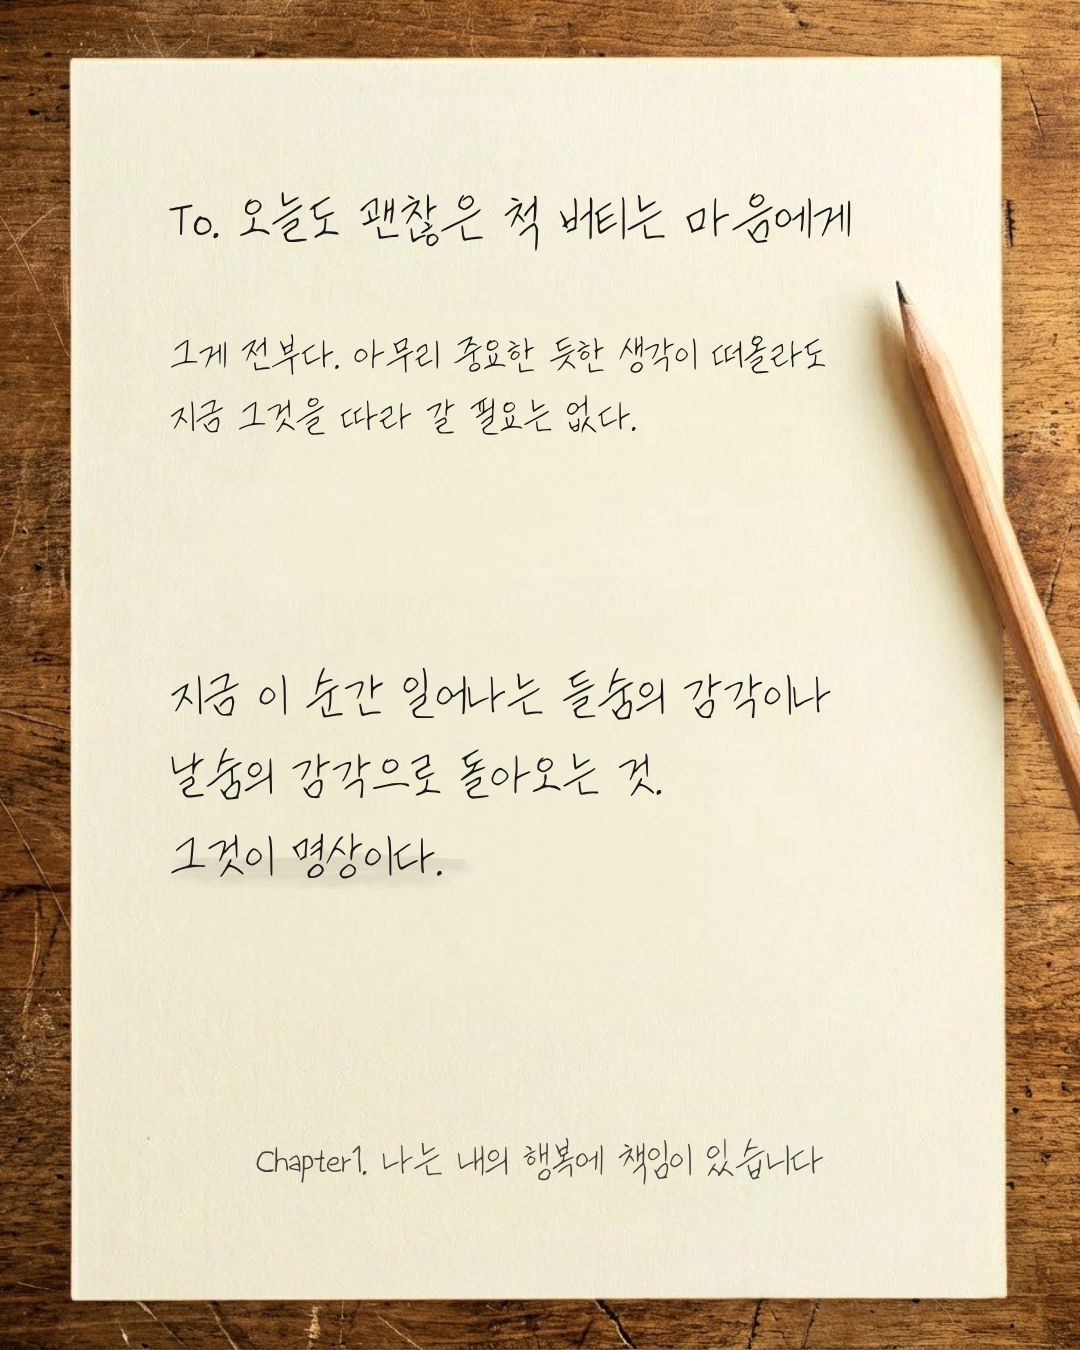 To. 오늘도 괜찮은 척 버티는 마음에게
그게 전부다. 아무리 중요한 듯한 생각이 떠올라도
지금 그것을 따라 갈 필요는 없다.
지금 이 순간 일어나는 들숨의 감각이나
날숨의 감각으로 돌아오는 것.
그것이 명상이다.
Chapter1. 나는 내의 행복에 책임이 있습니다